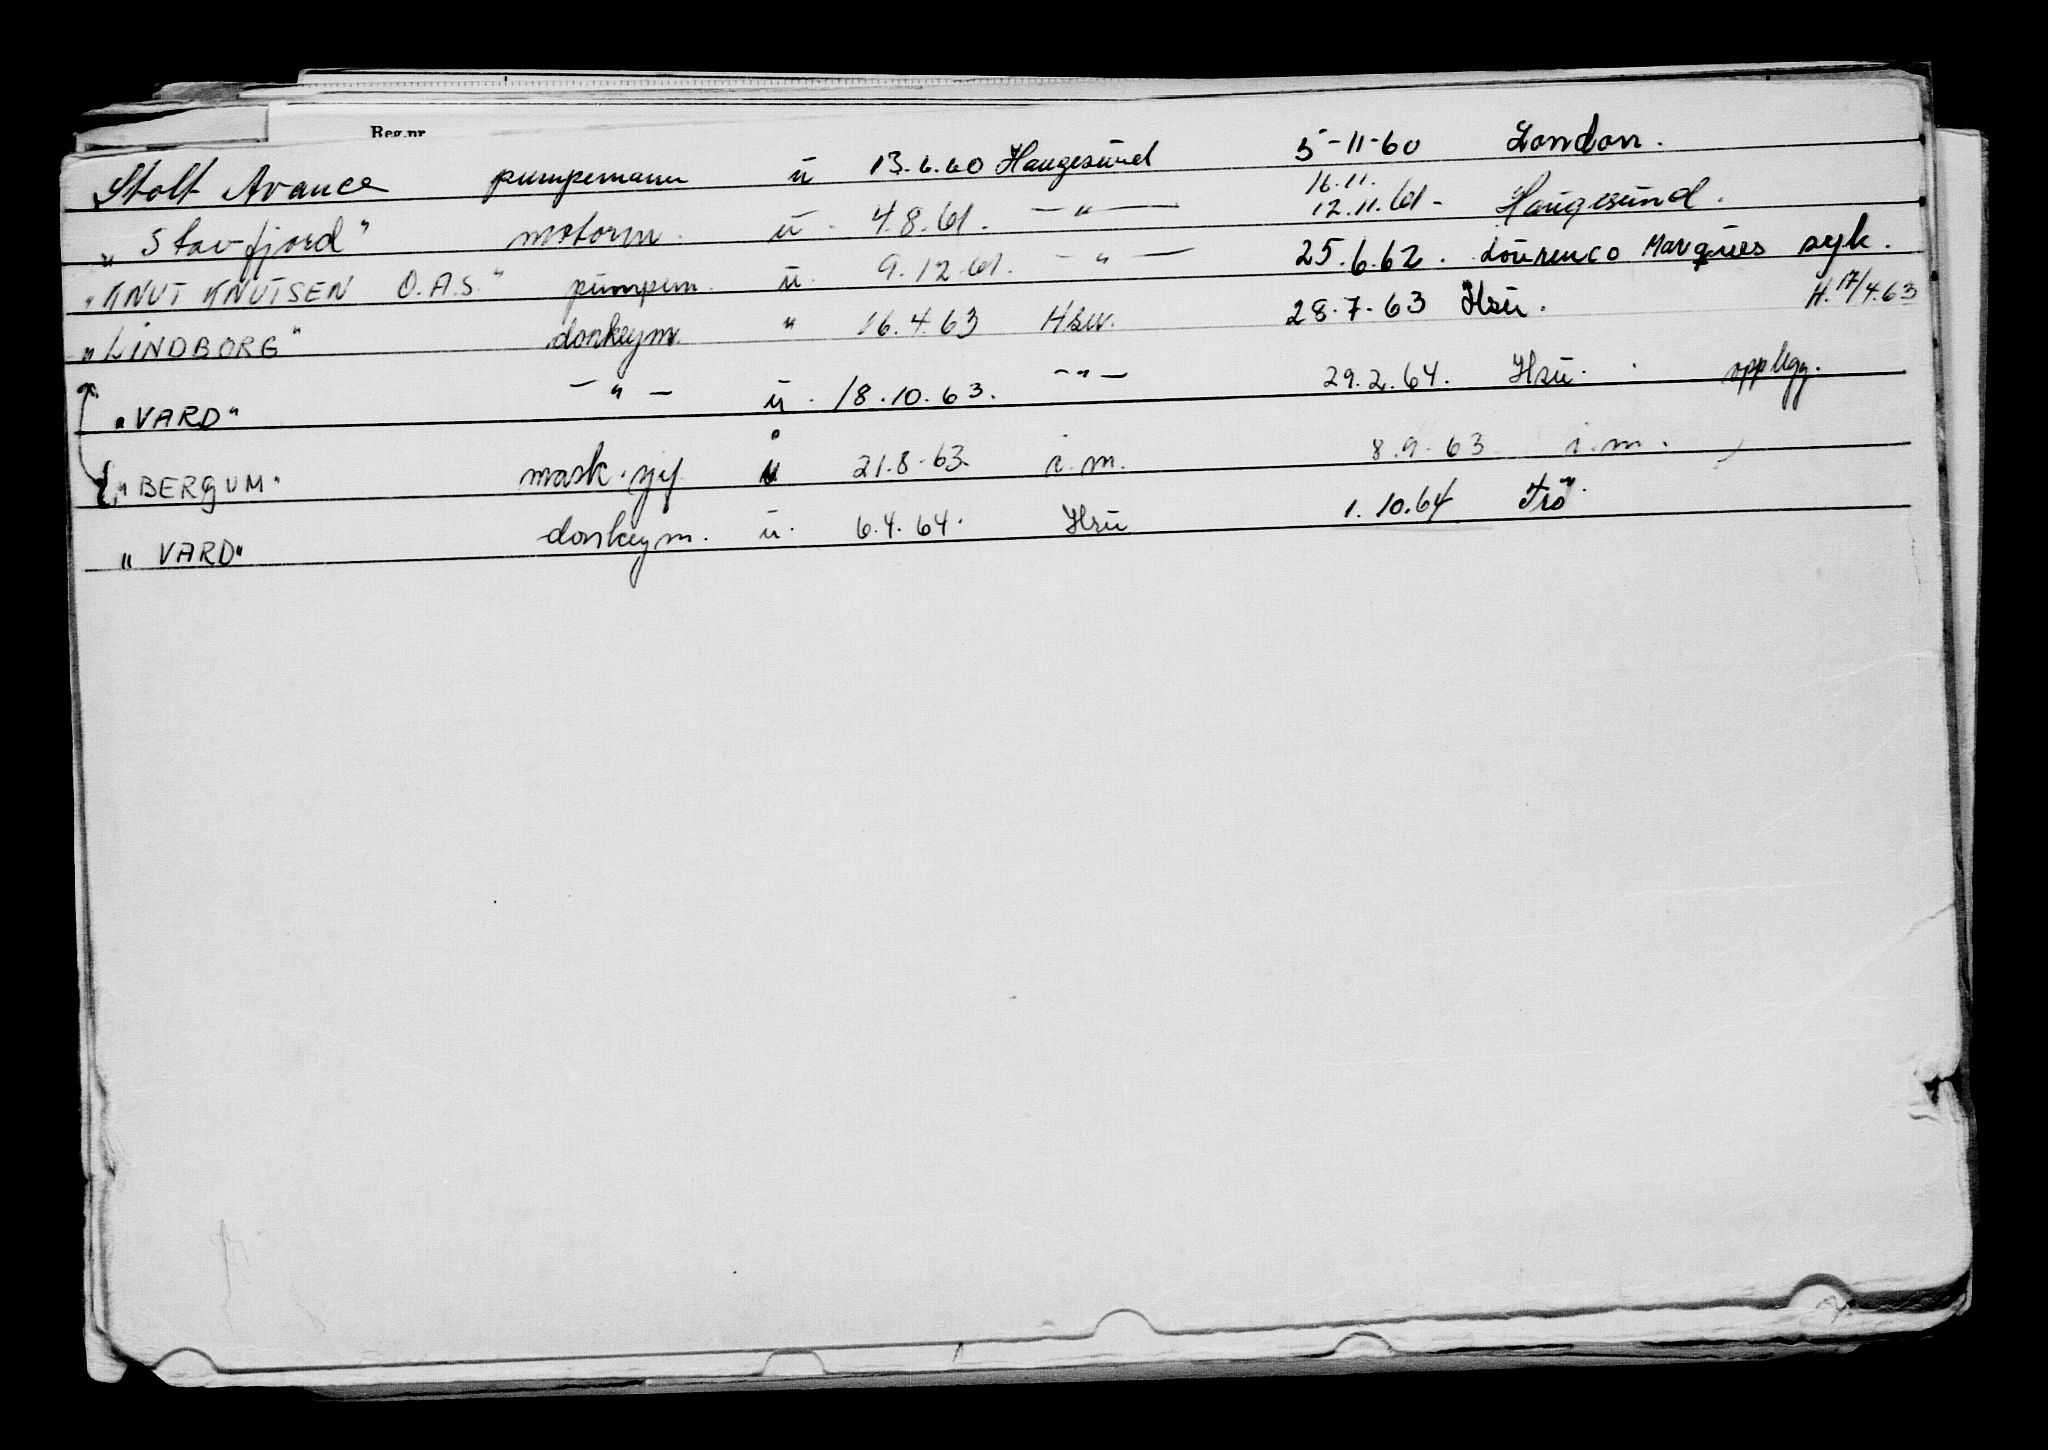 Reg.nr.
Stolt Avance pumpemann u 13.6.60 Haugesund 5-11-60 London.
16.11.
"Stavfjord" motorm. u. 4.8.61. —"— 12.11.61- Haugesund.
"KNUT KNUTSEN O.A.S." pumpem. u. 9.12.61. —"— 25.6.62. Lourenco Marques syk.
"LINDBORG" donkeym. " 16.4.63 Hsu. 28.7.63 Hsu. H.17/4.63
"VARD" —"— u. 18.10.63. —"— 29.2.64. Hsu. opplegg.
"BERGUM" mask. u 21.8.63. i.m. 8.9.63 i.m.
"VARD" donkeym. u. 6.4.64. Hsu 1.10.64 Trö.